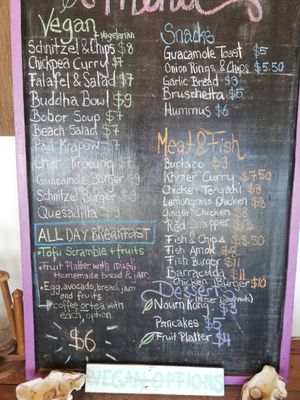 Menu
Vegan
+ Vegetarian
Schnitzel & Chips $8
Chickpea Curry $7
Falafel & Salad $7
Buddha Bowl $9
Bobor Soup $7
Beach Salad $7
Pad Krapow $7
Cher Kroeung $7
Guacamole Burger $9
Schnitzel Burger
Quesadilla $9
ALL DAY BREAKFAST
• Tofu Scramble + fruits
• Fruit Platter with musli
homemade bread & jam
• Egg, avocado, bread, jam
and fruits
coffee or tea with
each option
$6
Snacks
Guacamole Toast $5
Onion Rings & Chips $5.50
Garlic Bread $3
Bruschetta $5
Hummus $6
Meat & Fish
$9
Khmer Curry $7.50
Chicken Teriyaki $8
Lemongrass Chicken $8
Ginger Chicken $8
Red Snapper
Fish & Chips $8.50
Fish Amok $8
Fish Burger $11
Barracuda $11
Chicken Burger $10
Desserts
(Khmer Doughnuts)
Nourn Kong $3
Pancakes $5
Fruit Platter $4
VEGAN OPTIONS